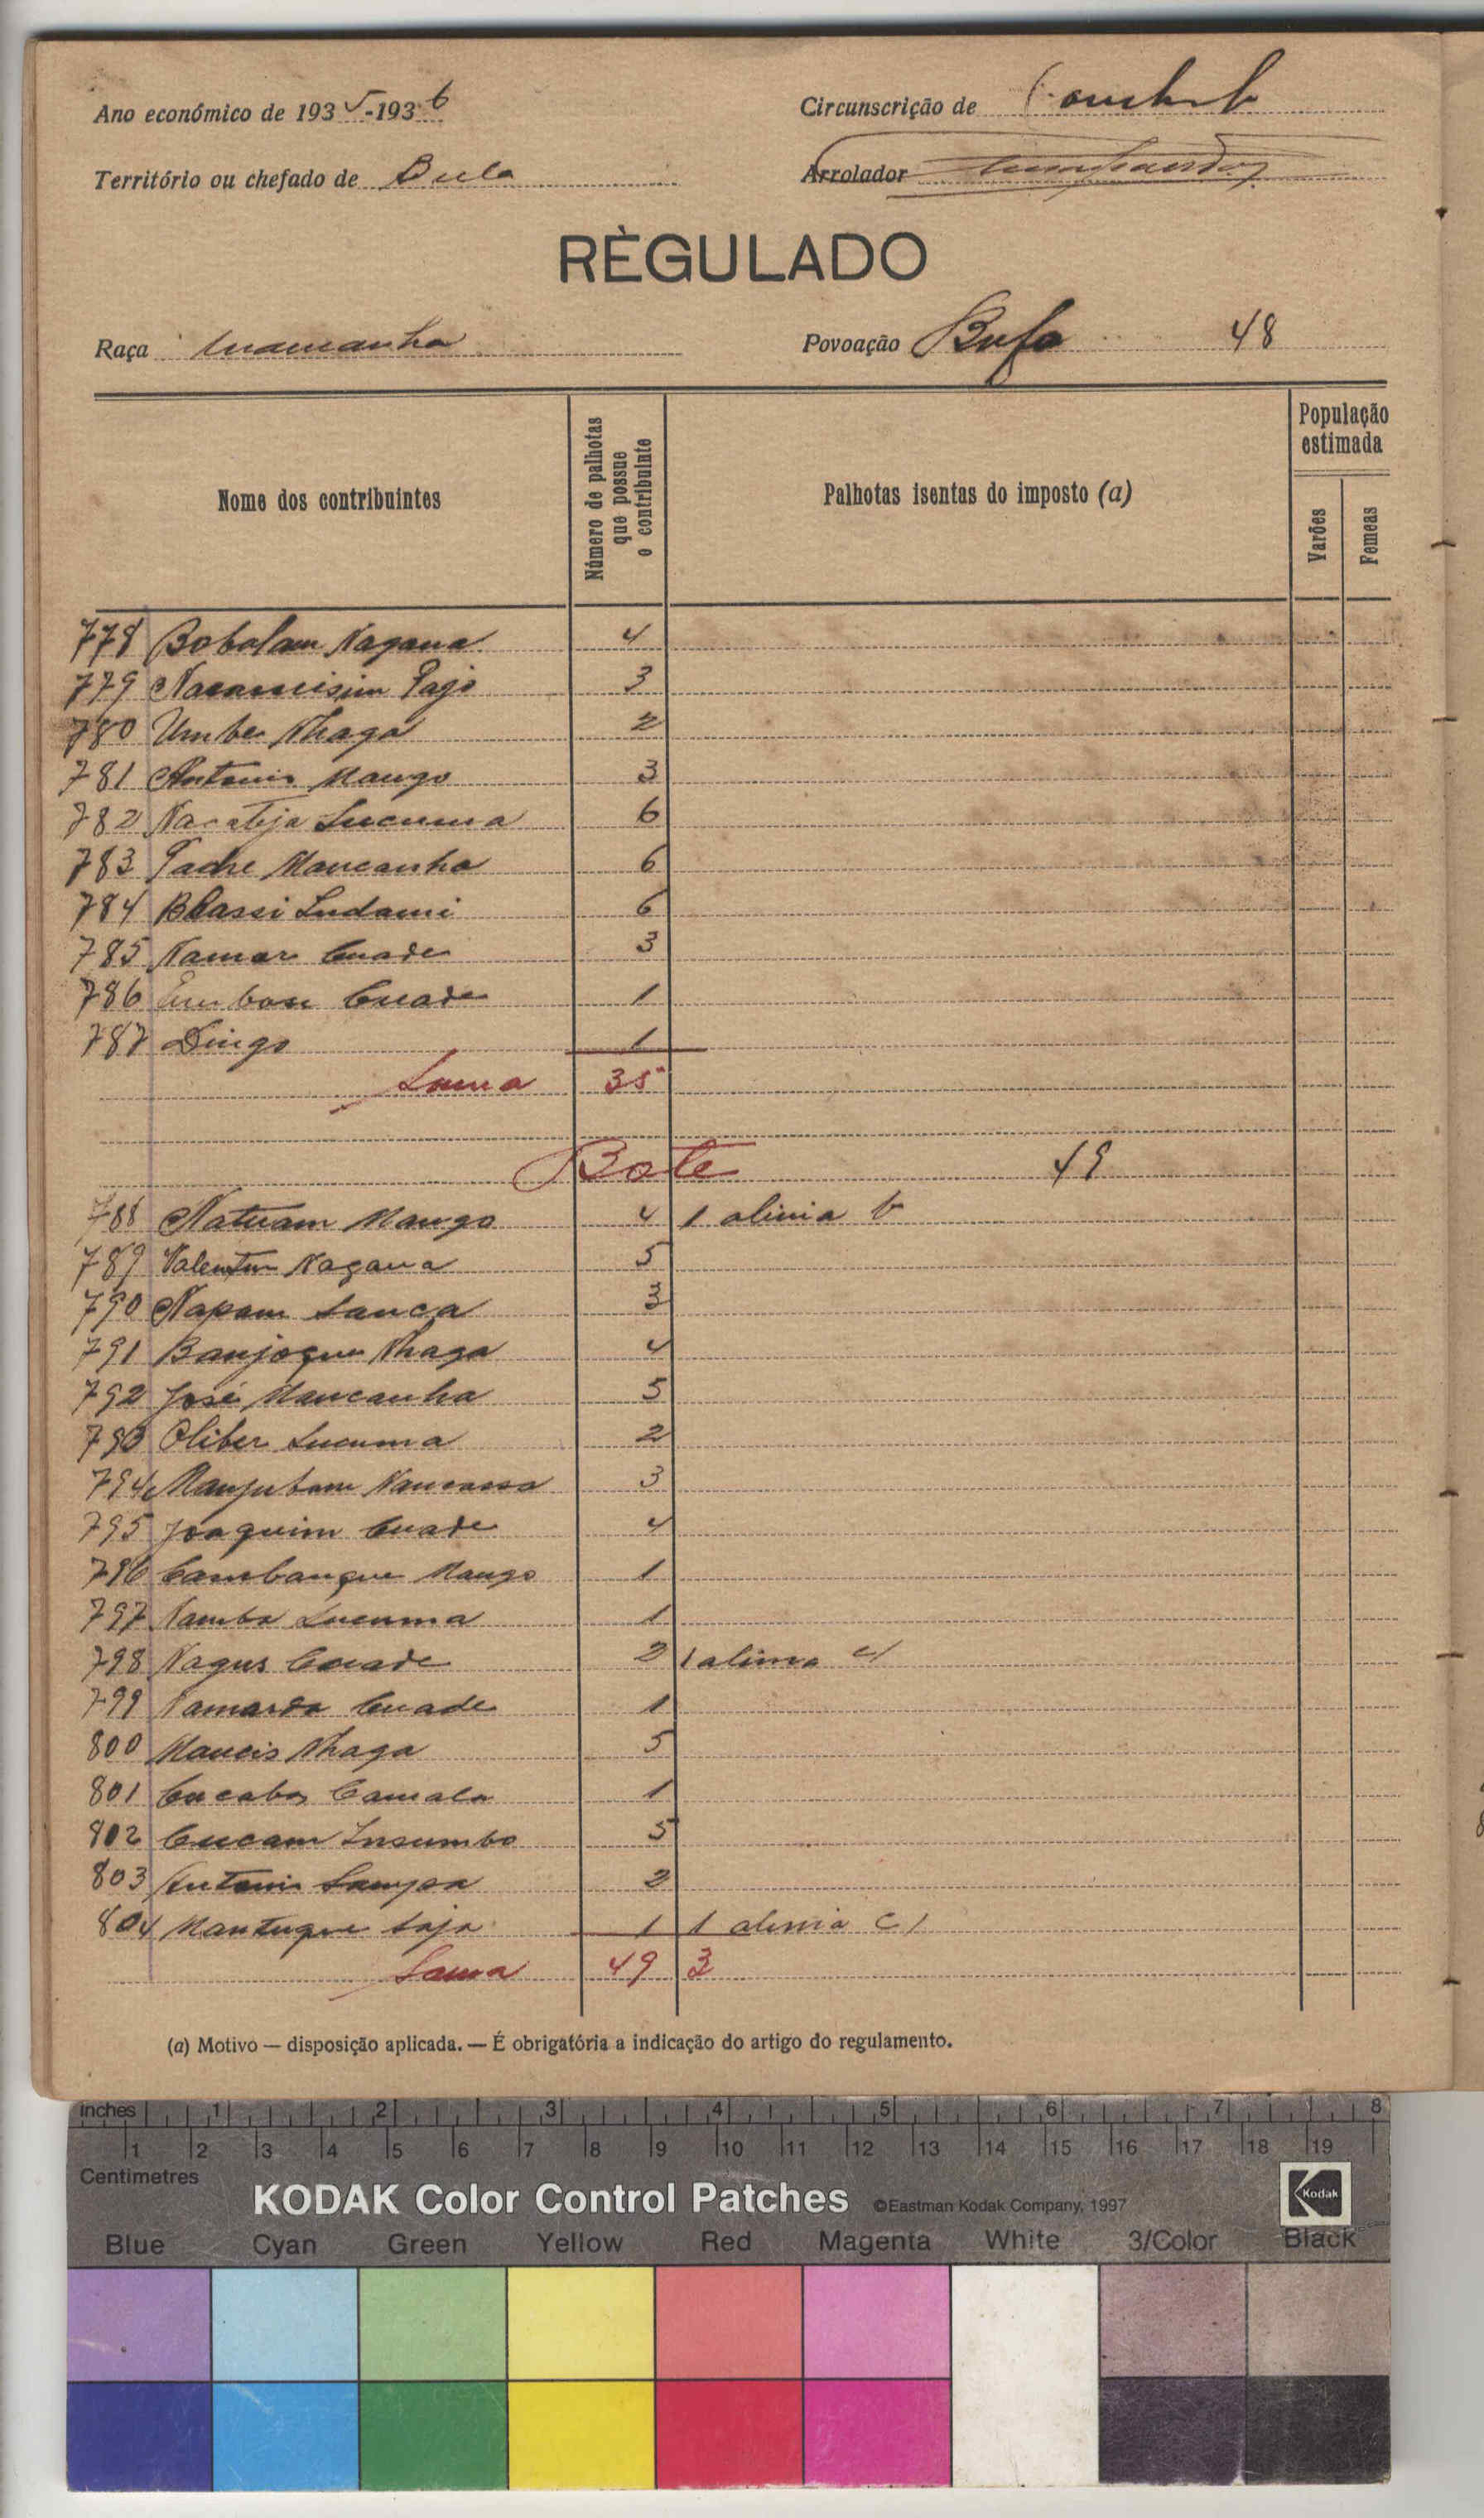 Ano económico de 1935-1936
Circunscrição de
Território ou chefado de Bula
Arrolador
RÈGULADO
Raça Mamcanha
Povoação Bufa 48
Nome dos contribuintes
Número de palhotas que possue o contribuinte
Palhotas isentas do imposto (a)
População estimada
Varões
Femeas
778 Bobolam Nagana 4
779 Pajo 3
780 Umbe Nhaga 2
781 Antonio Mango 3
782 Lucuma 6
783 Padre Mancanha 6
784 Blassi Sudami 6
785 Namar Cuade 3
786 Cuade 1
787 Dingo 1
Soma 35
Bote 49
788 Natuam Mango 4 1 alinia b
789 Valentim Nagana 5
790 Napam Sanca 3
791 Banjoque Nhaga 4
792 José Mancanha 5
793 Oliber Lucuma 2
794 Manjubam Nancassa 3
795 Joaquim Cuade 4
796 Cambanque Mango 1
797 Namba Lucuma 1
798 Nagus Cuade 2 1 alinia c)
799 Namarda Cuade 1
800 Maucis Nhaga 5
801 Cucabo Camala 1
802 Cucam Insumbo 5
803 Antonio Sampa 2
804 Mantuque Saja 1 1 alinia c)
Soma 49 3
(a) Motivo — disposição aplicada. — É obrigatória a indicação do artigo do regulamento.
inches 1 2 3 4 5 6 7 8
1 2 3 4 5 6 7 8 9 10 11 12 13 14 15 16 17 18 19
Centimetres
KODAK Color Control Patches ©Eastman Kodak Company, 1997 Kodak
Blue Cyan Green Yellow Red Magenta White 3/Color Black